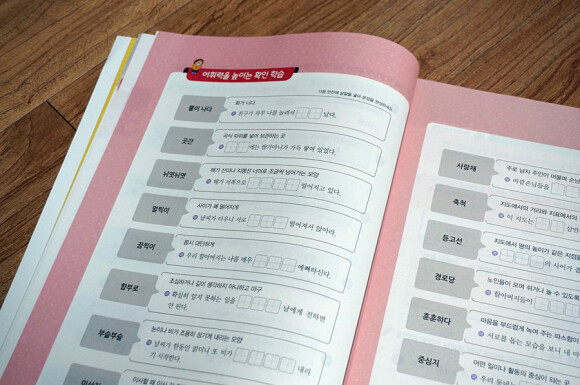 어휘력을 높이는 확인 학습
다음 빈칸에 낱말을 넣어 문장을 완성하세요.
불이 나다
곳간
곡식 따위를 넣어 보관하는 곳
에는 쌀가마니가 가득 쌓여 있었다.
뉘엿뉘엿
해가 산이나 지평선 너머로 조금씩 넘어가는 모양
해가 서쪽으로 떨어지고 있다.
멀찍이
사이가 꽤 떨어지게
날씨가 더우니 서로 떨어져서 앉아라.
끔찍이
몹시 대단하게
우리 할아버지는 나를 매우 예뻐하신다.
함부로
조심하거나 깊이 생각하지 아니하고 마구
확실히 알지 못하는 일을 남에게 전하면
안 된다.
부슬부슬
눈이나 비가 조용히 성기게 내리는 모양
날씨가 한동안 맑더니 또 비가 내리
기 시작한다.
이사할 때
사랑채
주로 남자 주인이 머물며 손님
바깥손님들을
축척
지도에서의 거리와 지표에서의
이 지도는
등고선
지도에서 땅의 높이가 같은 지점을
의 사이가
경로당
노인들이 모여 쉬거나 놀 수 있도록
할아버지들이
훈훈하다
마음을 부드럽게 녹여 주는 따스함이
서로를 돕는 모습을 보니 내 마
중심지
어떤 일이나 활동의 중심이 되는 곳
우리 동네는